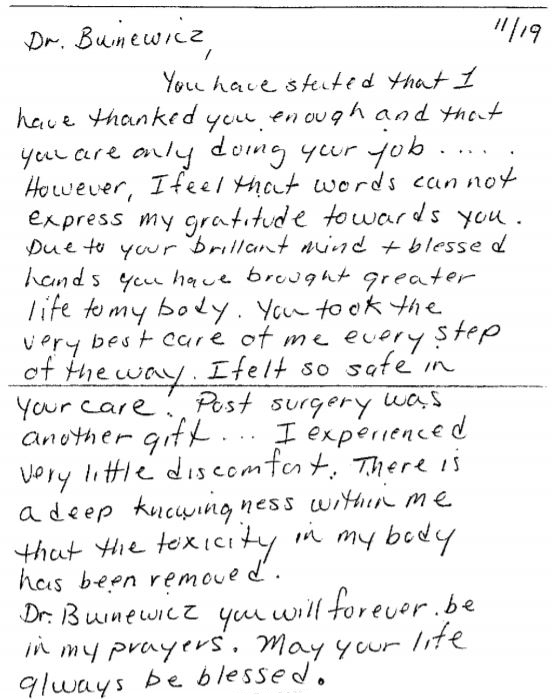 11/19
Dr. Buinewicz,
You have stated that I
have thanked you enough and that
you are only doing your job .....
However, I feel that words can not
express my gratitude towards you.
Due to your brillant mind + blessed
hands you have brought greater
life to my body. You took the
very best care of me every step
of the way. I felt so safe in
your care. Post surgery was
another gift ... I experienced
very little discomfort. There is
a deep knowingness within me
that the toxicity in my body
has been removed.
Dr. Buinewicz you will forever be
in my prayers. May your life
always be blessed.